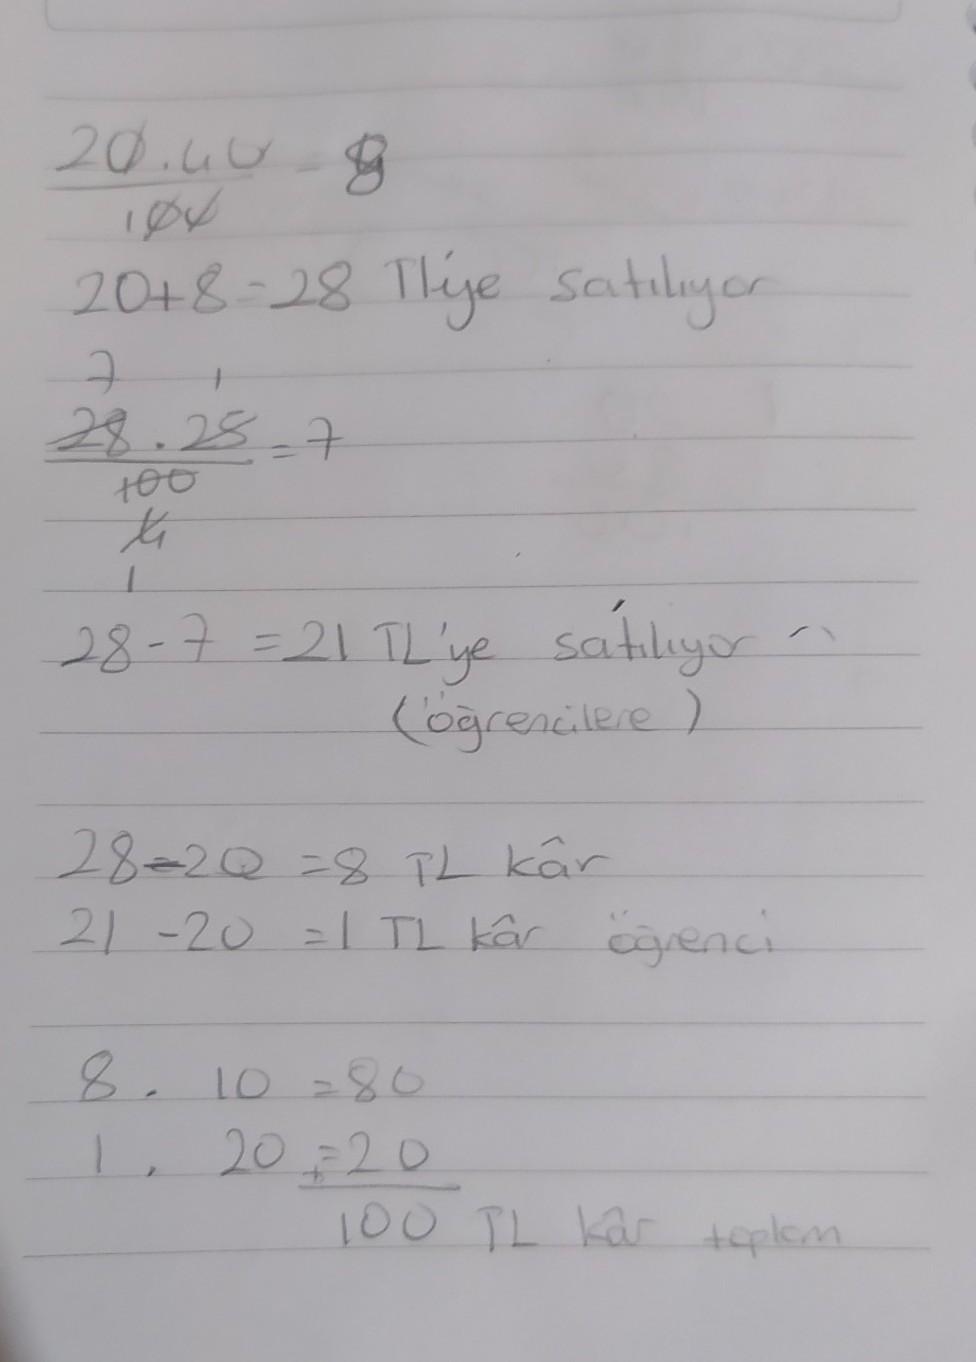 20.40 = 8
100
20+8=28 Tl'ye satılıyor
7 1
28.25 = 7
100
4
1
28-7=21 TL'ye satılıyor
(öğrencilere)
28-20=8 TL kâr
21-20=1 TL kâr öğrenci
8. 10=80
1. 20=20
+
100 TL kâr toplam